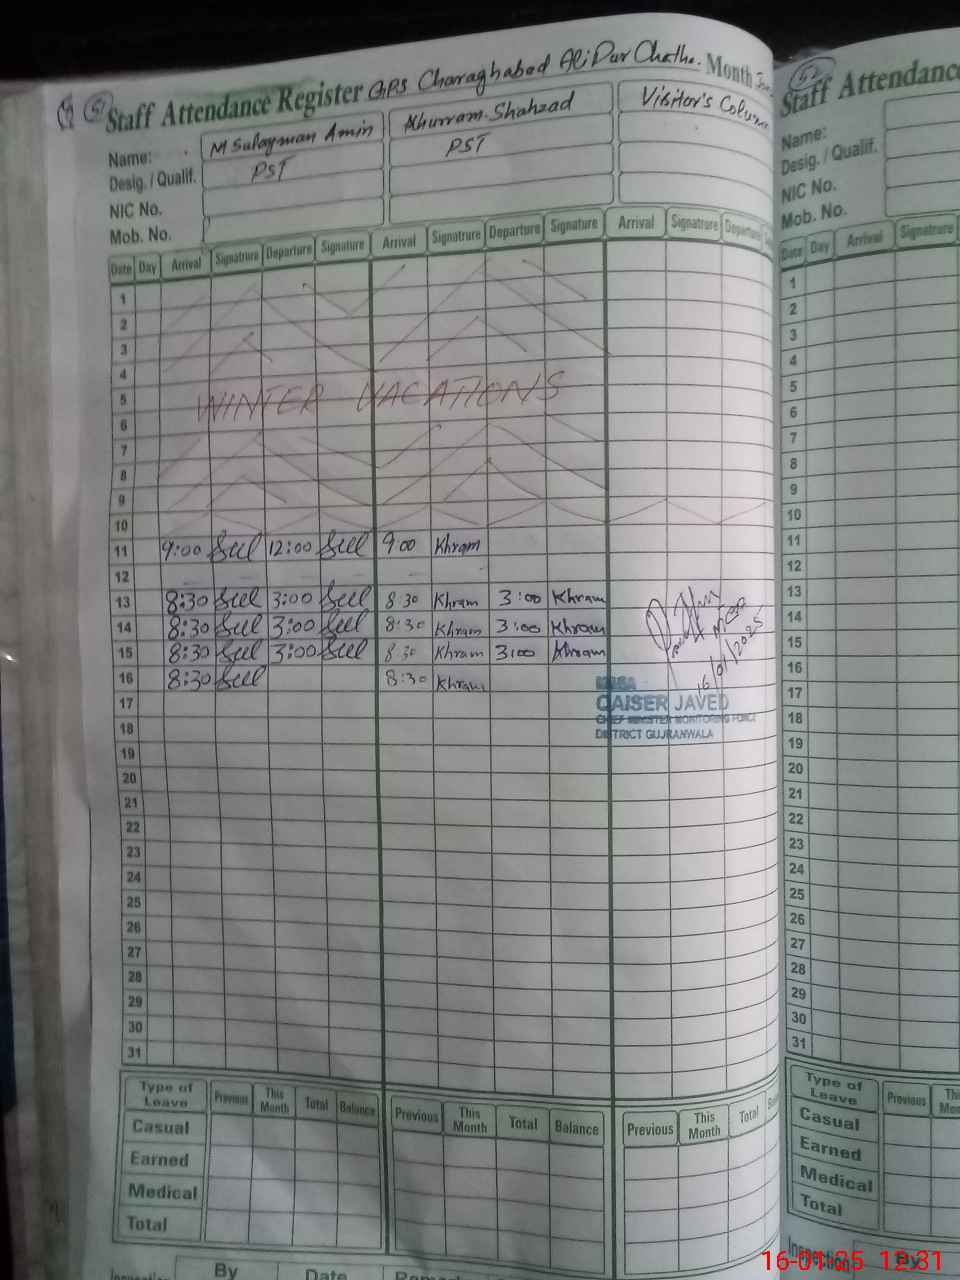 51 Staff Attendance Register GPS Charaghabad Ali Pur Chatha. Month
Name: M Sulayman Amin Khurram Shahzad Visitor's Column
Desig. / Qualif. PST PST
NIC No.
Mob. No.
Date Day Arrival Signatrure Departure Signature Arrival Signatrure Departure Signature Arrival Signatrure Departure
1
2
3
4
5 WINTER VACATIONS
6
7
8
9
10
11 9:00 12:00 9:00 Khram
12
13 8:30 3:00 8:30 Khram 3:00 Khram
14 8:30 3:00 8:30 Khram 3:00 Khram
15 8:30 3:00 8:30 Khram 3:00 Khram
16 8:30 8:30 Khram
16/01/2025
QAISER JAVED
CHIEF MINISTER MONITORING FORCE
DISTRICT GUJRANWALA
17
18
19
20
21
22
23
24
25
26
27
28
29
30
31
Type of Leave Previous This Month Total Balance Previous This Month Total Balance Previous This Month Total
Casual
Earned
Medical
Total
By Date
52 Staff Attendance
Name:
Desig. / Qualif.
NIC No.
Mob. No.
Date Day Arrival Signatrure
1
2
3
4
5
6
7
8
9
10
11
12
13
14
15
16
17
18
19
20
21
22
23
24
25
26
27
28
29
30
31
Type of Leave Previous
Casual
Earned
Medical
Total
Inspection By
16-01-25 12:31